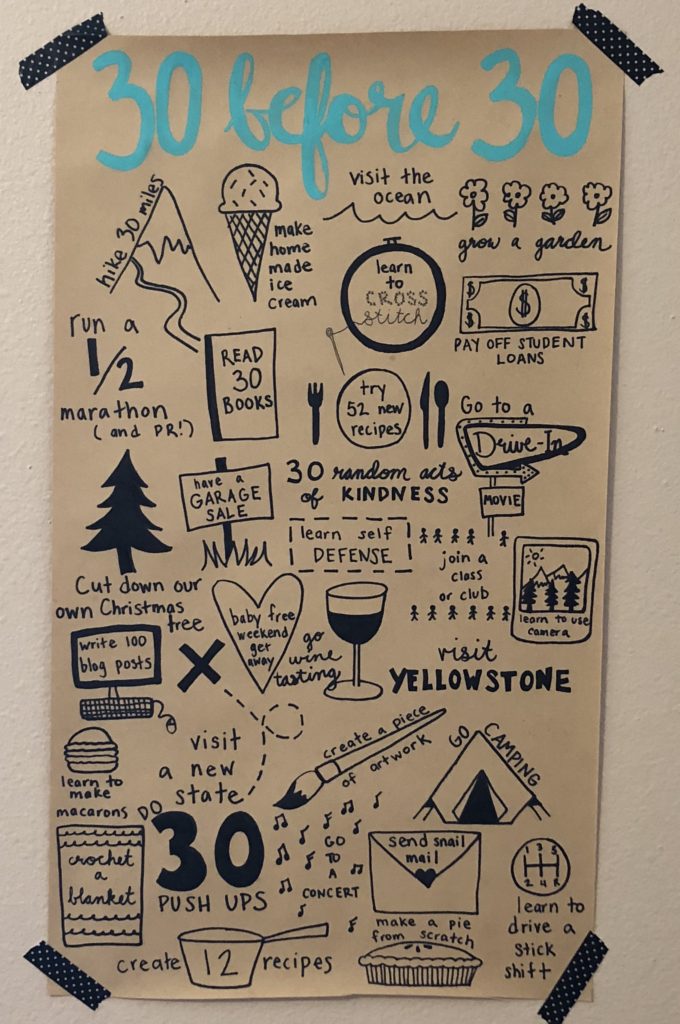 30 before 30
hike 30 miles
make
home
made
ice
cream
visit the
ocean
grow a garden
learn
to
CROSS
stitch
$ $
$
$ $
PAY OFF STUDENT
LOANS
run a
1/2
marathon
(and PR!)
READ
30
BOOKS
try
52 new
recipes
Go to a
Drive-In
MOVIE
have a
GARAGE
SALE
30 random acts
of KINDNESS
learn self
DEFENSE
join a
class
or club
learn to use
camera
Cut down our
own Christmas
tree
baby free
weekend
get
away
go
wine
tasting
write 100
blog posts
visit
YELLOWSTONE
visit
a new
state
create a piece
of artwork
GO CAMPING
learn to
make
macarons
DO
30
PUSH UPS
GO
TO
A
CONCERT
send snail
mail
1 3 5
2 4 R
learn to
drive a
stick
shift
crochet
a
blanket
create 12 recipes
make a pie
from scratch